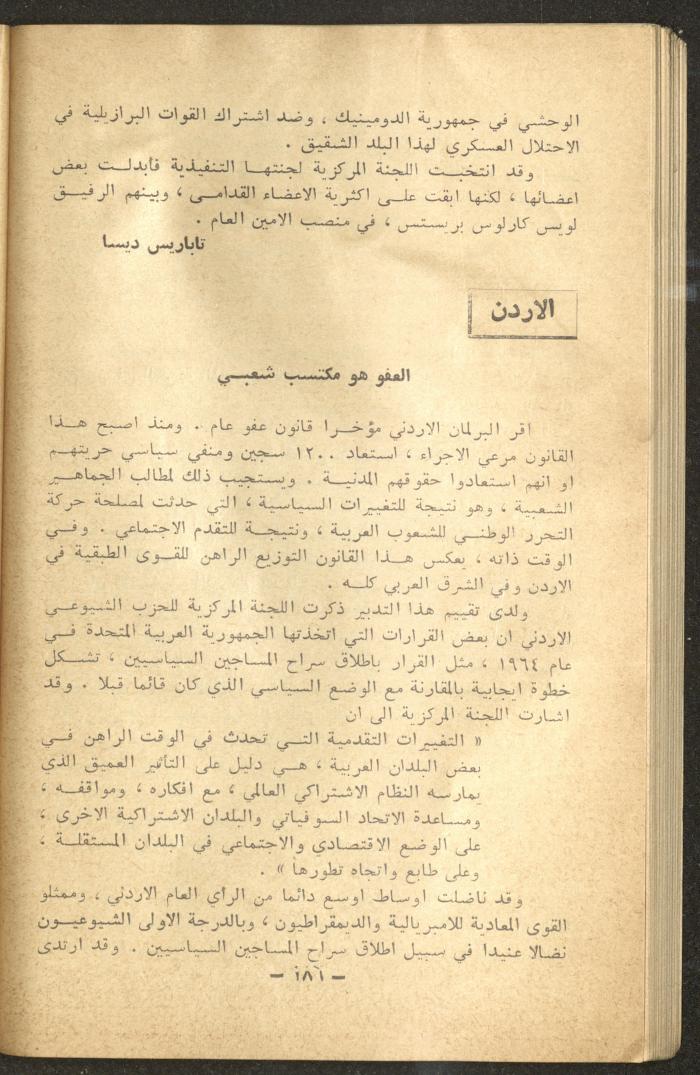 الوحشي في جمهورية الدومينيك ، وضد اشتراك القوات البرازيلية في
الاحتلال العسكري لهذا البلد الشقيق .
وقد انتخبت اللجنة المركزية لجنتها التنفيذية فأبدلت بعض
اعضائها ، لكنها ابقت على اكثرية الاعضاء القدامى ، وبينهم الرفيق
لويس كارلوس بريستس ، في منصب الامين العام .
تاباريس ديسا
الاردن
العفو هو مكتسب شعبي
اقر البرلمان الاردني مؤخرا قانون عفو عام . ومنذ اصبح هذا
القانون مرعي الاجراء ، استعاد ١٢٠٠ سجين ومنفي سياسي حريتهم
او انهم استعادوا حقوقهم المدنية . ويستجيب ذلك لمطالب الجماهير
الشعبية ، وهو نتيجة للتغييرات السياسية ، التي حدثت لمصلحة حركة
التحرر الوطني للشعوب العربية ، ونتيجة للتقدم الاجتماعي . وفي
الوقت ذاته ، يعكس هذا القانون التوزيع الراهن للقوى الطبقية في
الاردن وفي الشرق العربي كله .
ولدى تقييم هذا التدبير ذكرت اللجنة المركزية للحزب الشيوعي
الاردني ان بعض القرارات التي اتخذتها الجمهورية العربية المتحدة في
عام ١٩٦٤ ، مثل القرار باطلاق سراح المساجين السياسيين ، تشكل
خطوة ايجابية بالمقارنة مع الوضع السياسي الذي كان قائما قبلا . وقد
اشارت اللجنة المركزية الى ان
« التغييرات التقدمية التي تحدث في الوقت الراهن في
بعض البلدان العربية ، هي دليل على التأثير العميق الذي
يمارسه النظام الاشتراكي العالمي ، مع افكاره ، ومواقفه ،
ومساعدة الاتحاد السوفياتي والبلدان الاشتراكية الاخرى ،
على الوضع الاقتصادي والاجتماعي في البلدان المستقلة ،
وعلى طابع واتجاه تطورها » .
وقد ناضلت اوساط اوسع دائما من الرأي العام الاردني ، وممثلو
القوى المعادية للامبريالية والديمقراطيون ، وبالدرجة الاولى الشيوعيون
نضالا عنيدا في سبيل اطلاق سراح المساجين السياسيين . وقد ارتدى
– ١٨٦ –